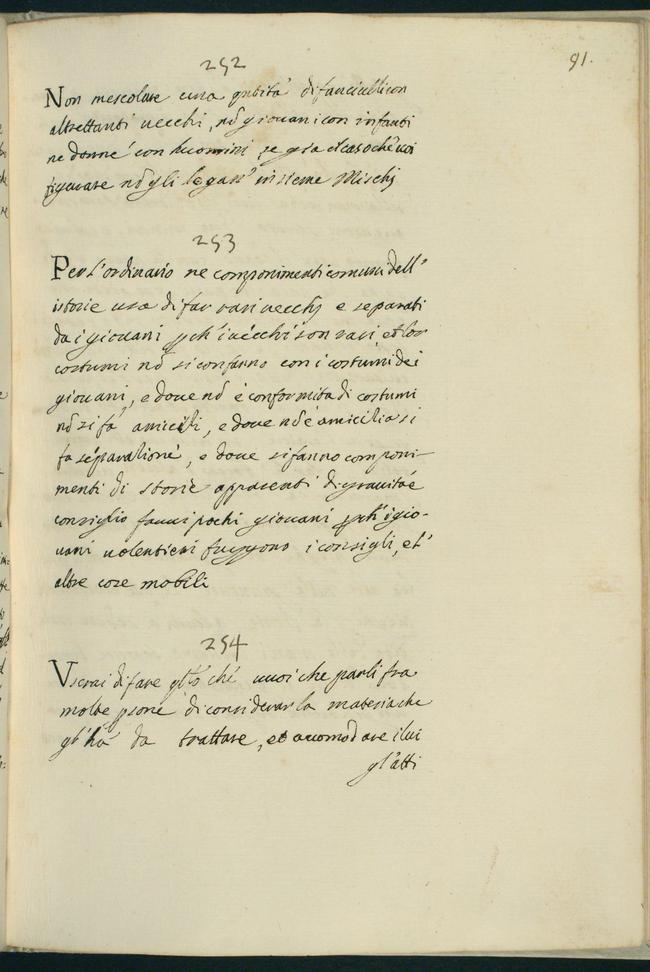 91.
252
Non mescolare una qntità di fanciulli con
altrettanti uecchi, nō giouani con infanti
ne donne con huomini, se gia il caso che uoi
figurare nō gli legass' insieme Mischi
253
Per l'ordinario ne componimenti comuni dell'
istorie usa di far rari uecchi e separati
da i giouani pch' i uecchi son rari, et lor
costumi nō si confanno con i costumi dei
giouani, e doue nō è conformita di costumi
nō si fa amicitii, e doue nō è amicitia si
fa separatione, e doue si fanno componi-
menti di storie apparenti di grauita e
consiglio fanui pochi giouani pch' i gio-
uani uolentieri fuggono i consigli, et'
altre cose mobili
254
Userai di fare qllo che' uuoi che parli fra
molte psone di considerar la materia che
gl' ha da trattare, et acomodare i lui
gl'atti